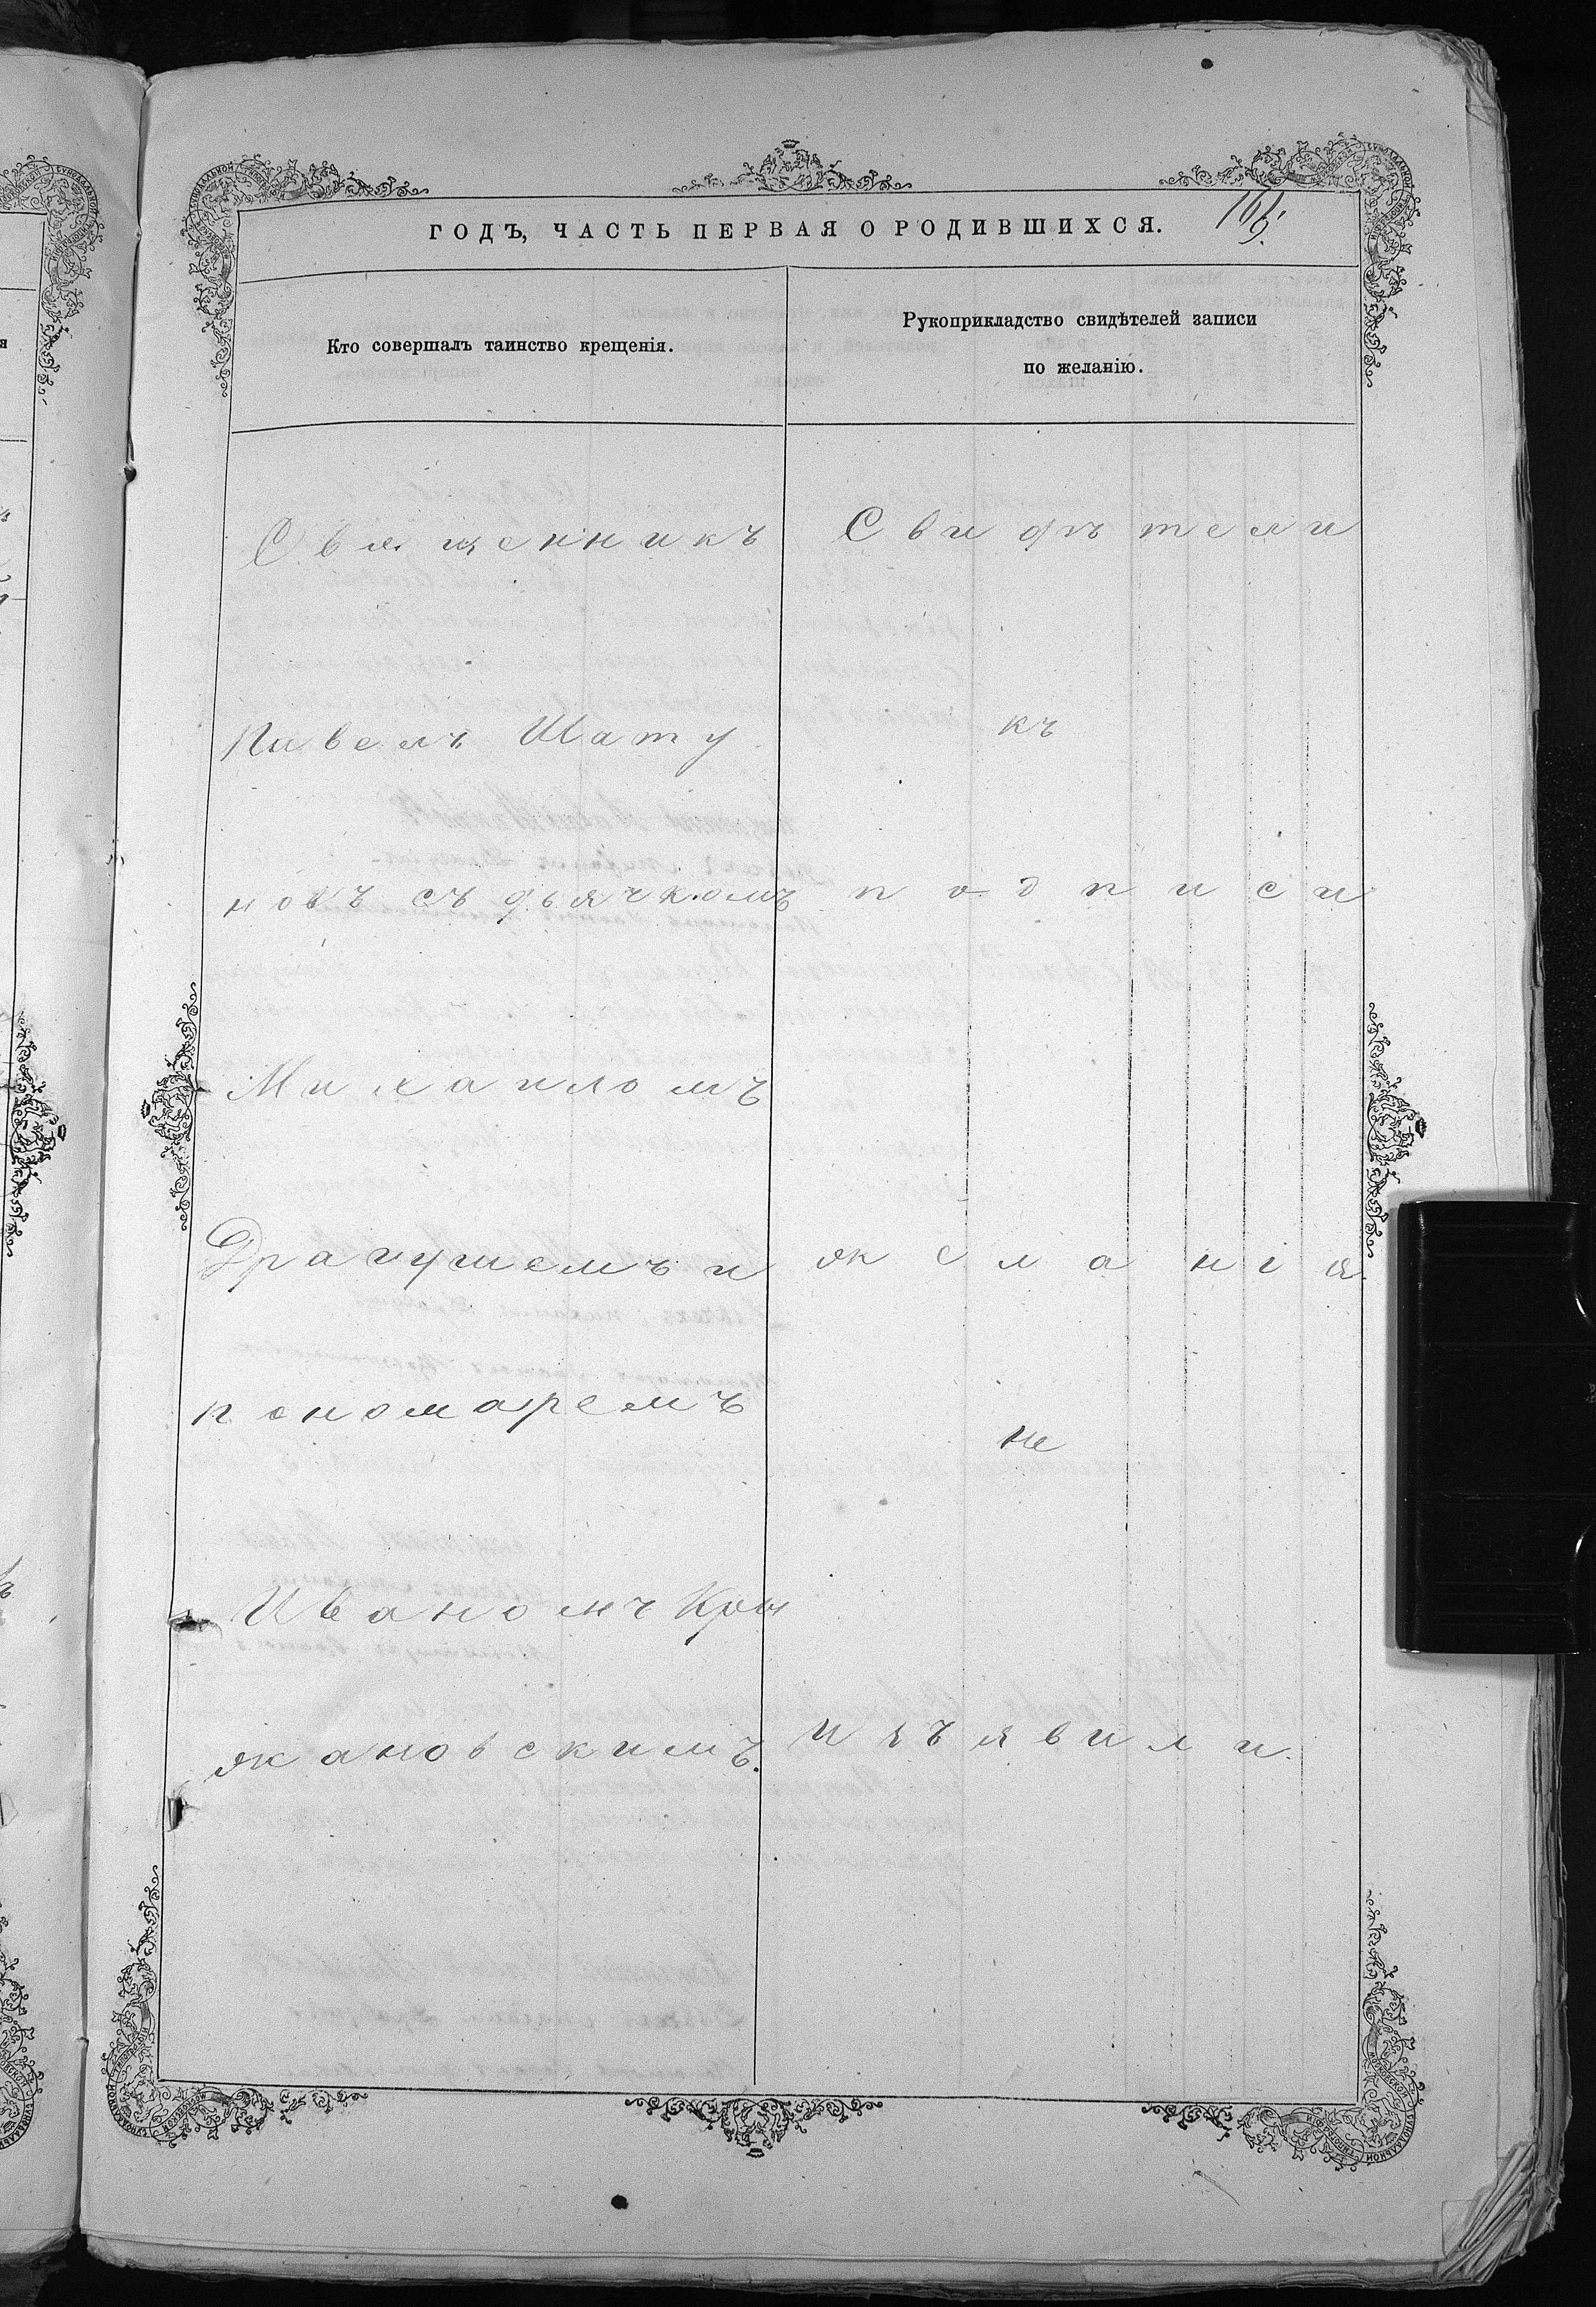 ГОДЪ, ЧАСТЬ ПЕРВАЯ О РОДИВШИХСЯ.
Кто совершалъ таинство крещенія.
Рукоприкладство свидѣтелей записи
по желанію.
Священникъ
Павелъ Шату
новъ съ дьячкомъ
Михаиломъ
Драгушемъ и
пономаремъ
Иваномъ Кры
жановскимъ.
Свидѣтели
къ
подписи
желанія
не
изъявили.